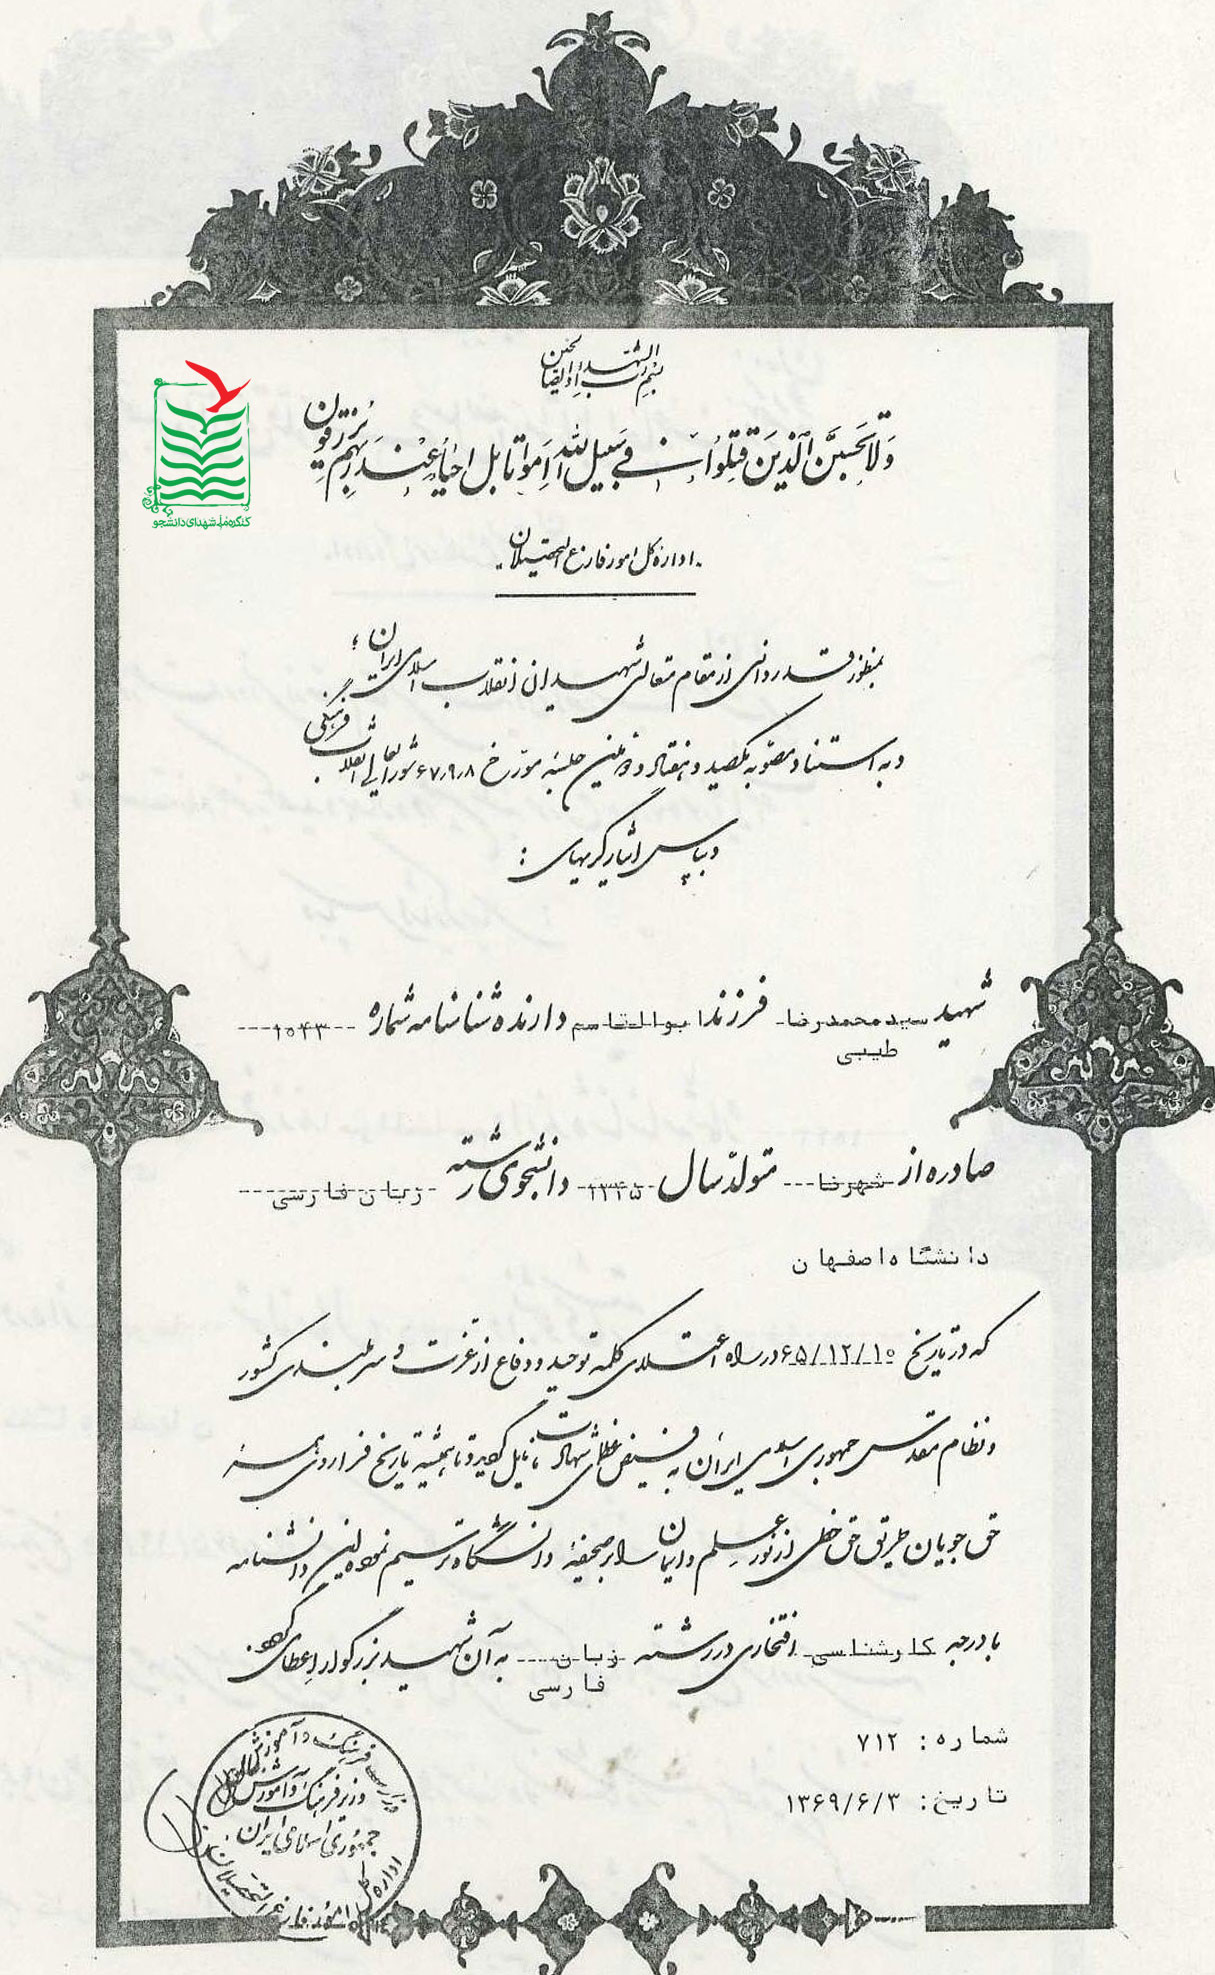 بسم رب الشهداء و الصالحین
وَلا تَحسَبَنَّ الَّذینَ قُتِلُوا فی سَبیلِ اللهِ اَمواتا بَل اَحیاءٌ عِندَ رَبِّهِم یُرزَقُون
کنگره ملی شهدای دانشجو
اداره کل امور فارغ التحصیلان
بمنظور قدردانی از مقام متعالی شهیدان انقلاب اسلامی ایران ؛
و به استناد مصوبه یکصد و هفتاد و دومین جلسه مورخ ۶۷٫۹٫۸ شورایعالی انقلاب فرهنگی
و بپاس ایثارگریهای :
شهید سید محمدرضا فرزند ابوالقاسم دارنده شناسنامه شماره ۱۰۴۳
طیبی
صادره از شهرضا متولد سال ۱۳۴۵ دانشجوی رشته زبان فارسی
دانشگاه اصفهان
که در تاریخ ۶۵/۱۲/۱۰ در راه اعتلای کلمه توحید و دفاع از عزت و سربلندی کشور
و نظام مقدس جمهوری اسلامی ایران به فیض عظمای شهادت نایل گردید و تا همیشه تاریخ فرا روی همه
حق جویان طریق حق خطی از نور علم و ایمان را بر صحیفه دانشگاه ترسیم نموده این دانشنامه
با درجه کارشناسی افتخاری در رشته زبان به آن شهید بزرگوار اعطا می گردد.
فارسی
شماره : ۷۱۲
تاریخ : ۱۳۶۹/۶/۳
وزارت فرهنگ و آموزش عالی
وزیر فرهنگ و آموزش عالی
جمهوری اسلامی ایران
اداره کل امور فارغ التحصیلان